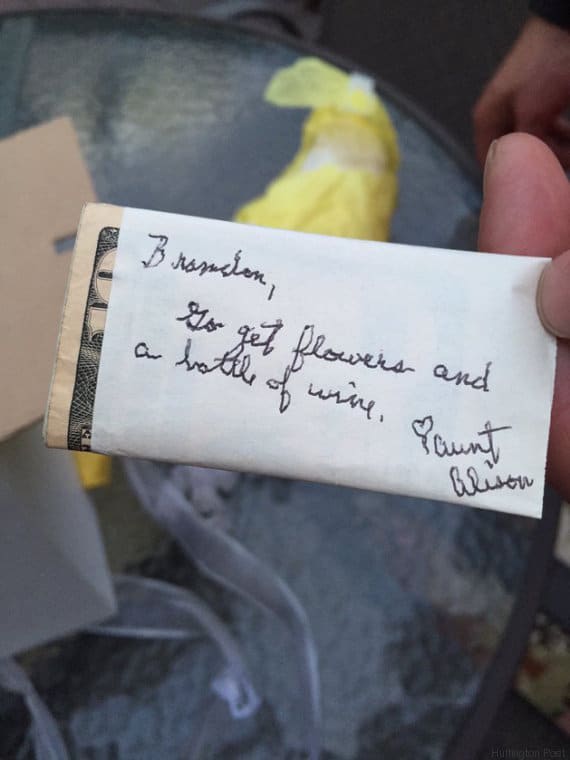 Brandon,
Go get flowers and
a bottle of wine.
♡ aunt
Alison
10
Huffington Post